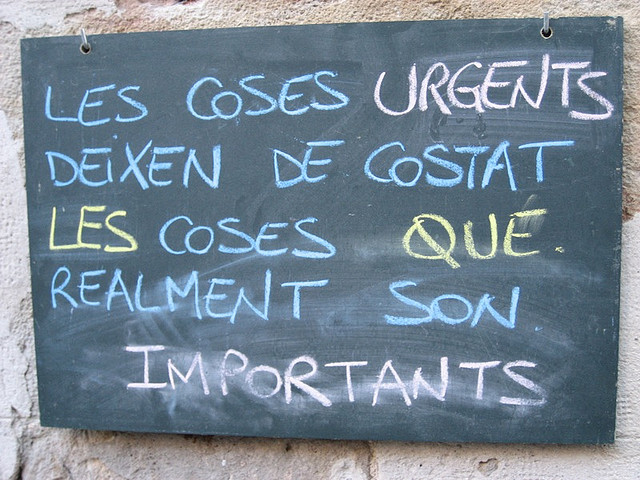 LES COSES URGENTS
DEIXEN DE COSTAT
LES COSES QUE
REALMENT SON
IMPORTANTS